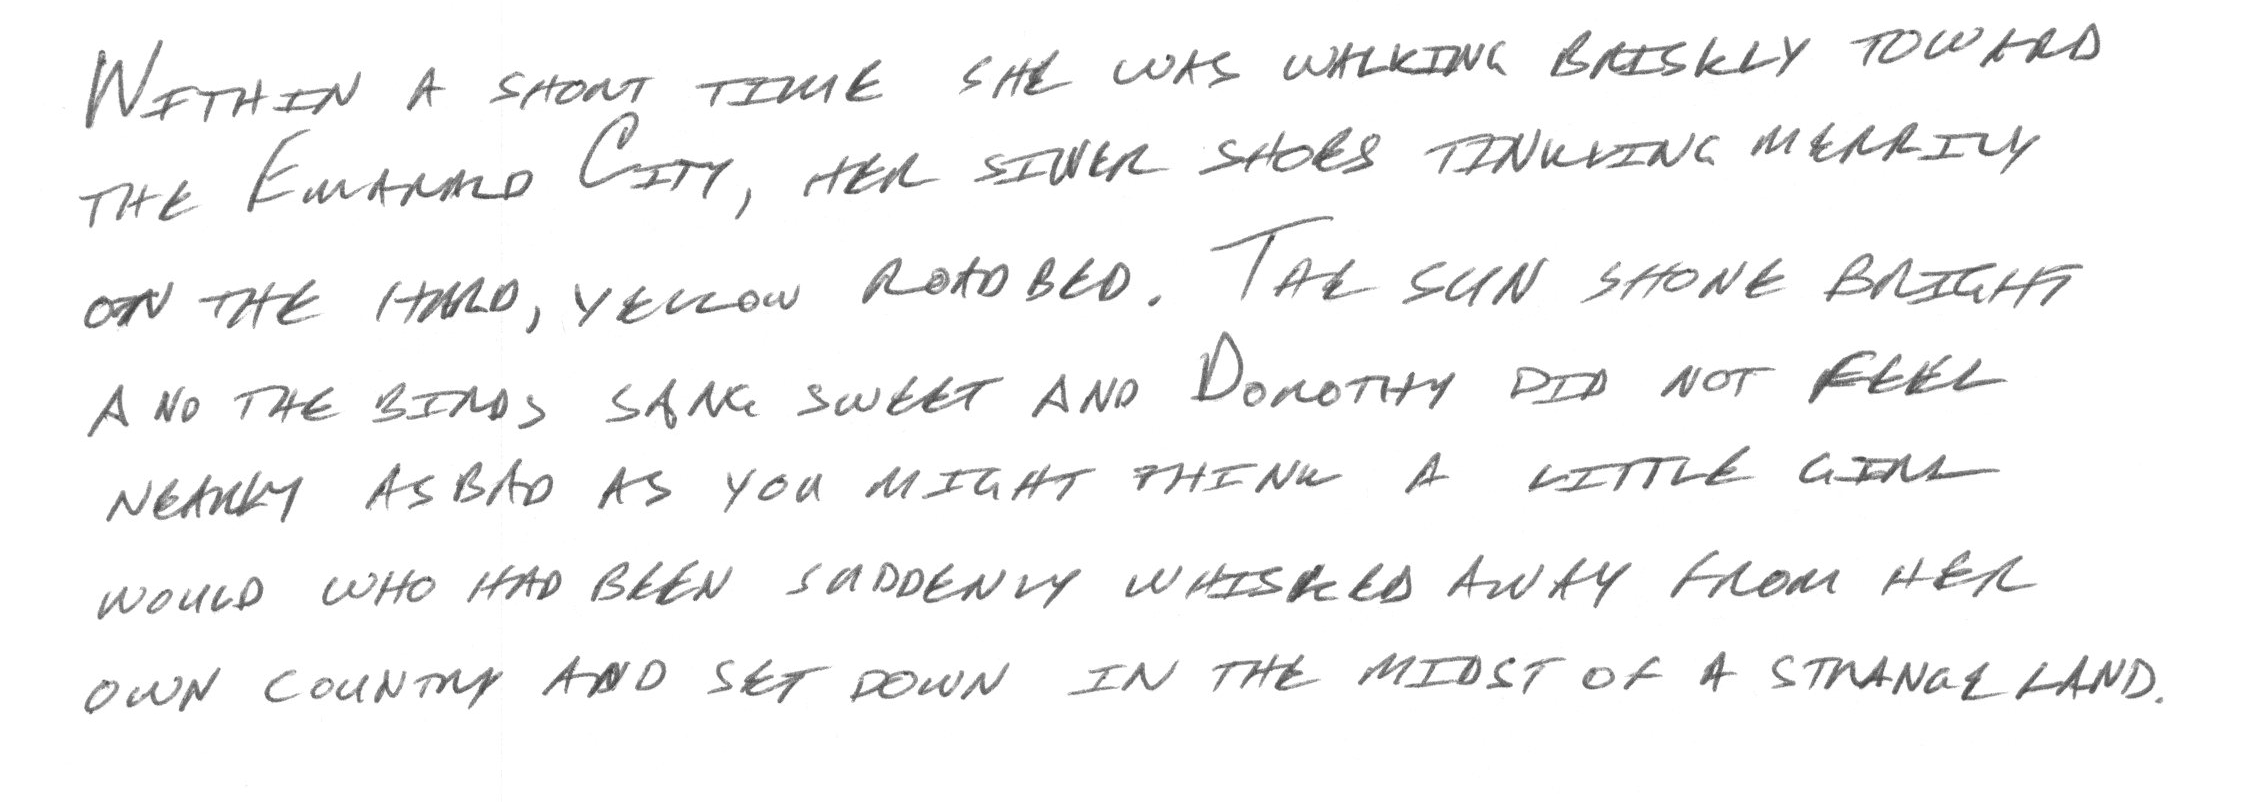 Within a short time she was walking briskly toward
the Emarald City, her silver shoes tinkling merrily
on the hard, yellow road bed. The sun shone bright
and the birds sang sweet and Dorothy did not feel
nearly as bad as you might think a little girl
would who had been suddenly whisked away from her
own country and set down in the midst of a strange land.